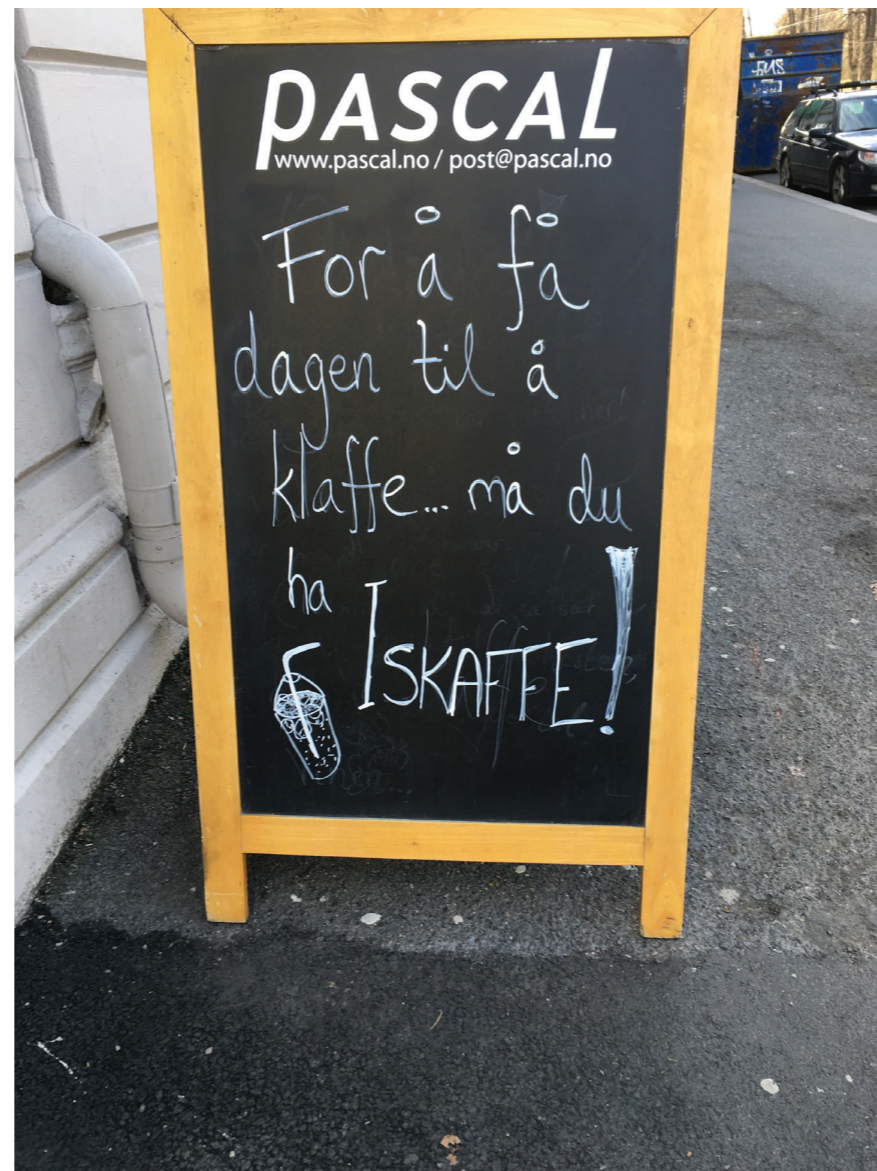 PASCAL
www.pascal.no / post@pascal.no
For å få
dagen til å
klaffe... må du
ha ISKAFFE!